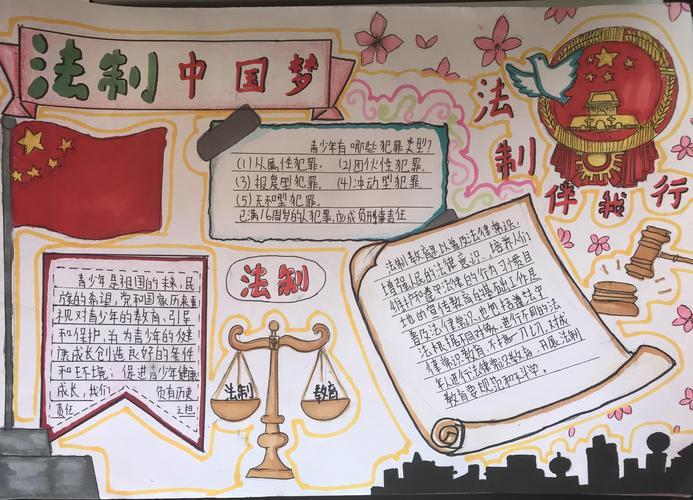 法制中国梦
法制
伴我行
青少年有哪些犯罪类型?
(1)从属性犯罪, (2)团伙性犯罪,
(3)报复型犯罪, (4)冲动型犯罪
(5)无知型犯罪.
已满16周岁的人犯罪,应成负刑事责任
青少年是祖国的未来,民
族的希望,党和国家历来重
视对青少年的教育、引导
和保护,并为青少年的健
康成长创造良好的条件
和环境,促进青少年健康
成长,我们 负有历史
责任
法制
法制 教育
法制教育是以普及法律常识,
增强人民的法律意识,培养人们
维护和遵守法律的行为习惯目
地的宣传教育的基础工作是
普及法律常识,也把包括遵纪守
法根据不同对象,进行不同的法
律常识教育,
制进行法律常识教育,开展法制
教育要规范和科学。